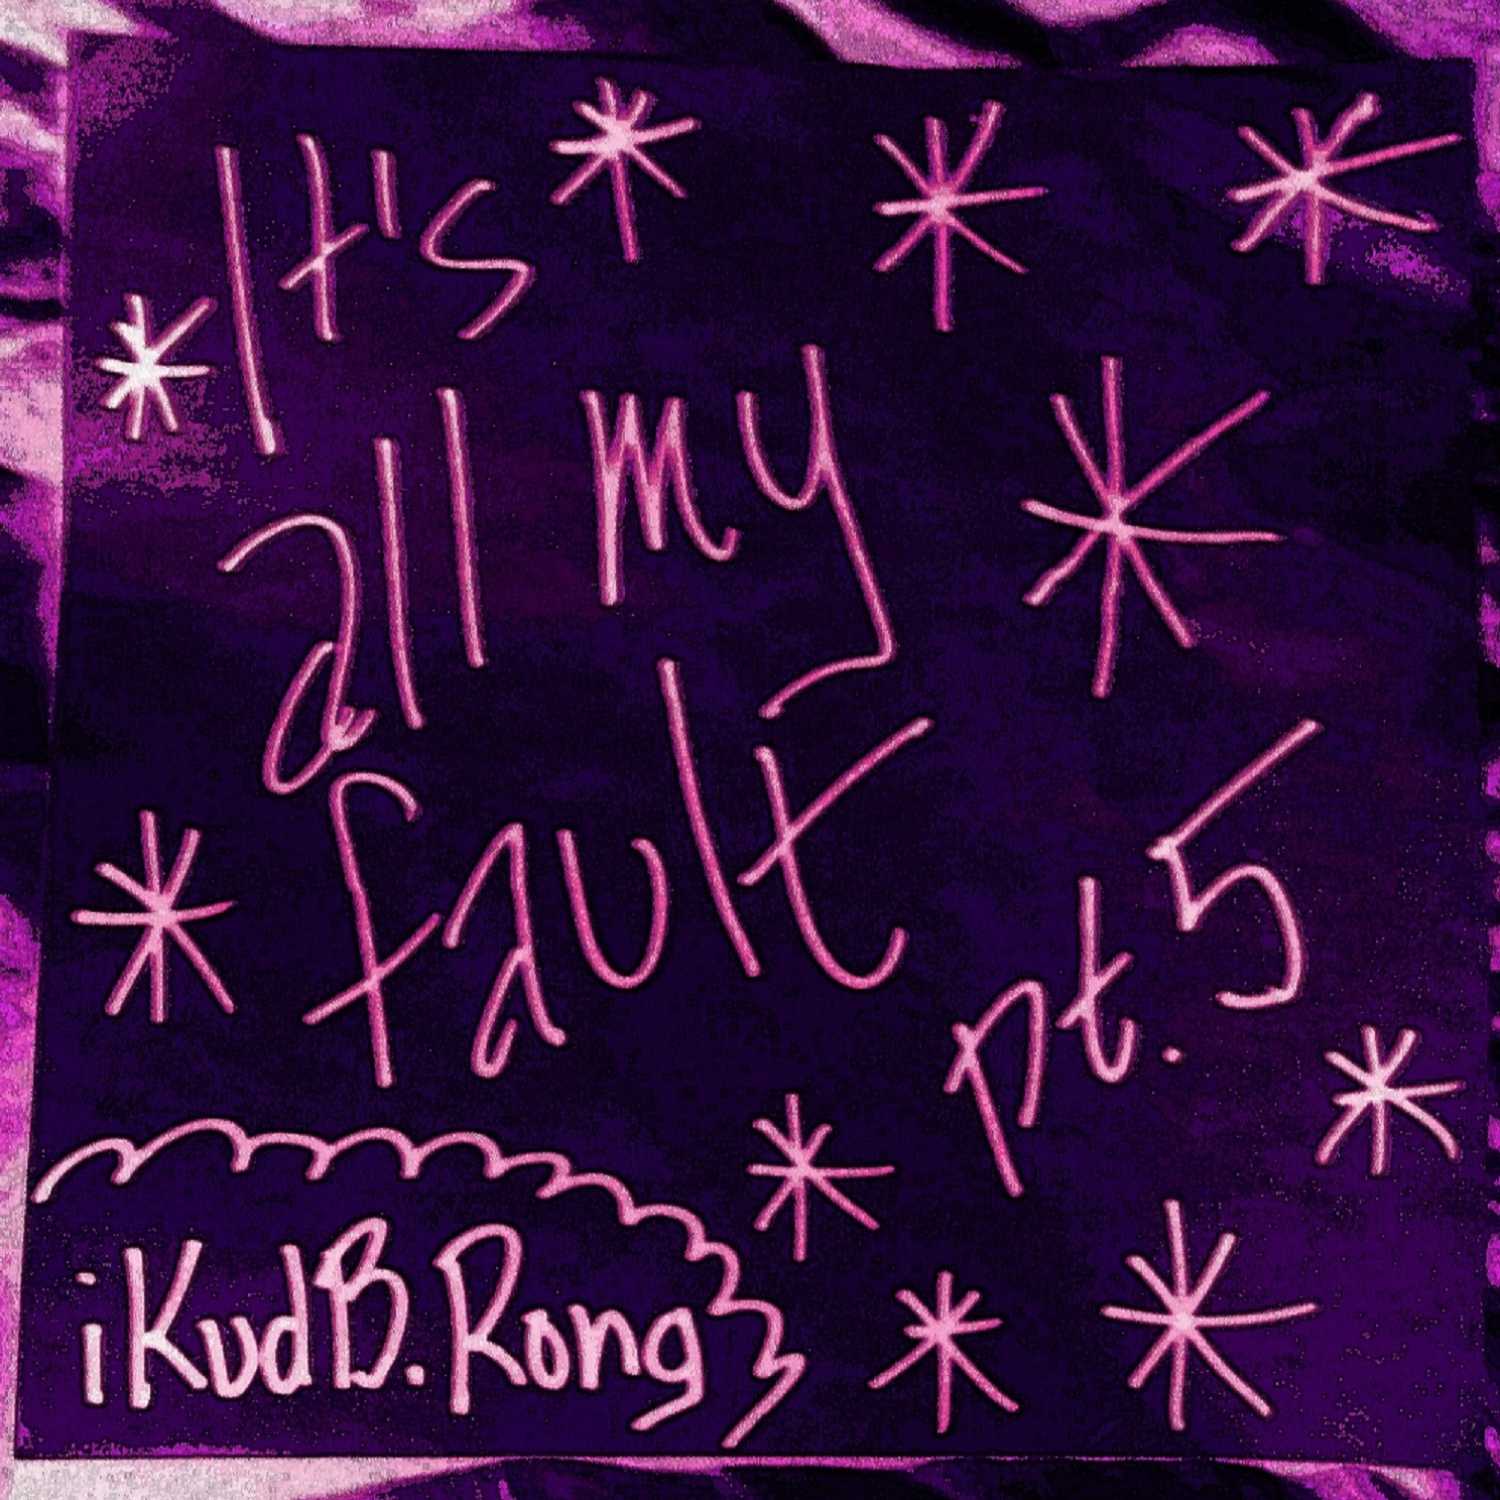 It's
all my
fault
pt. 5
iKudB.Rong